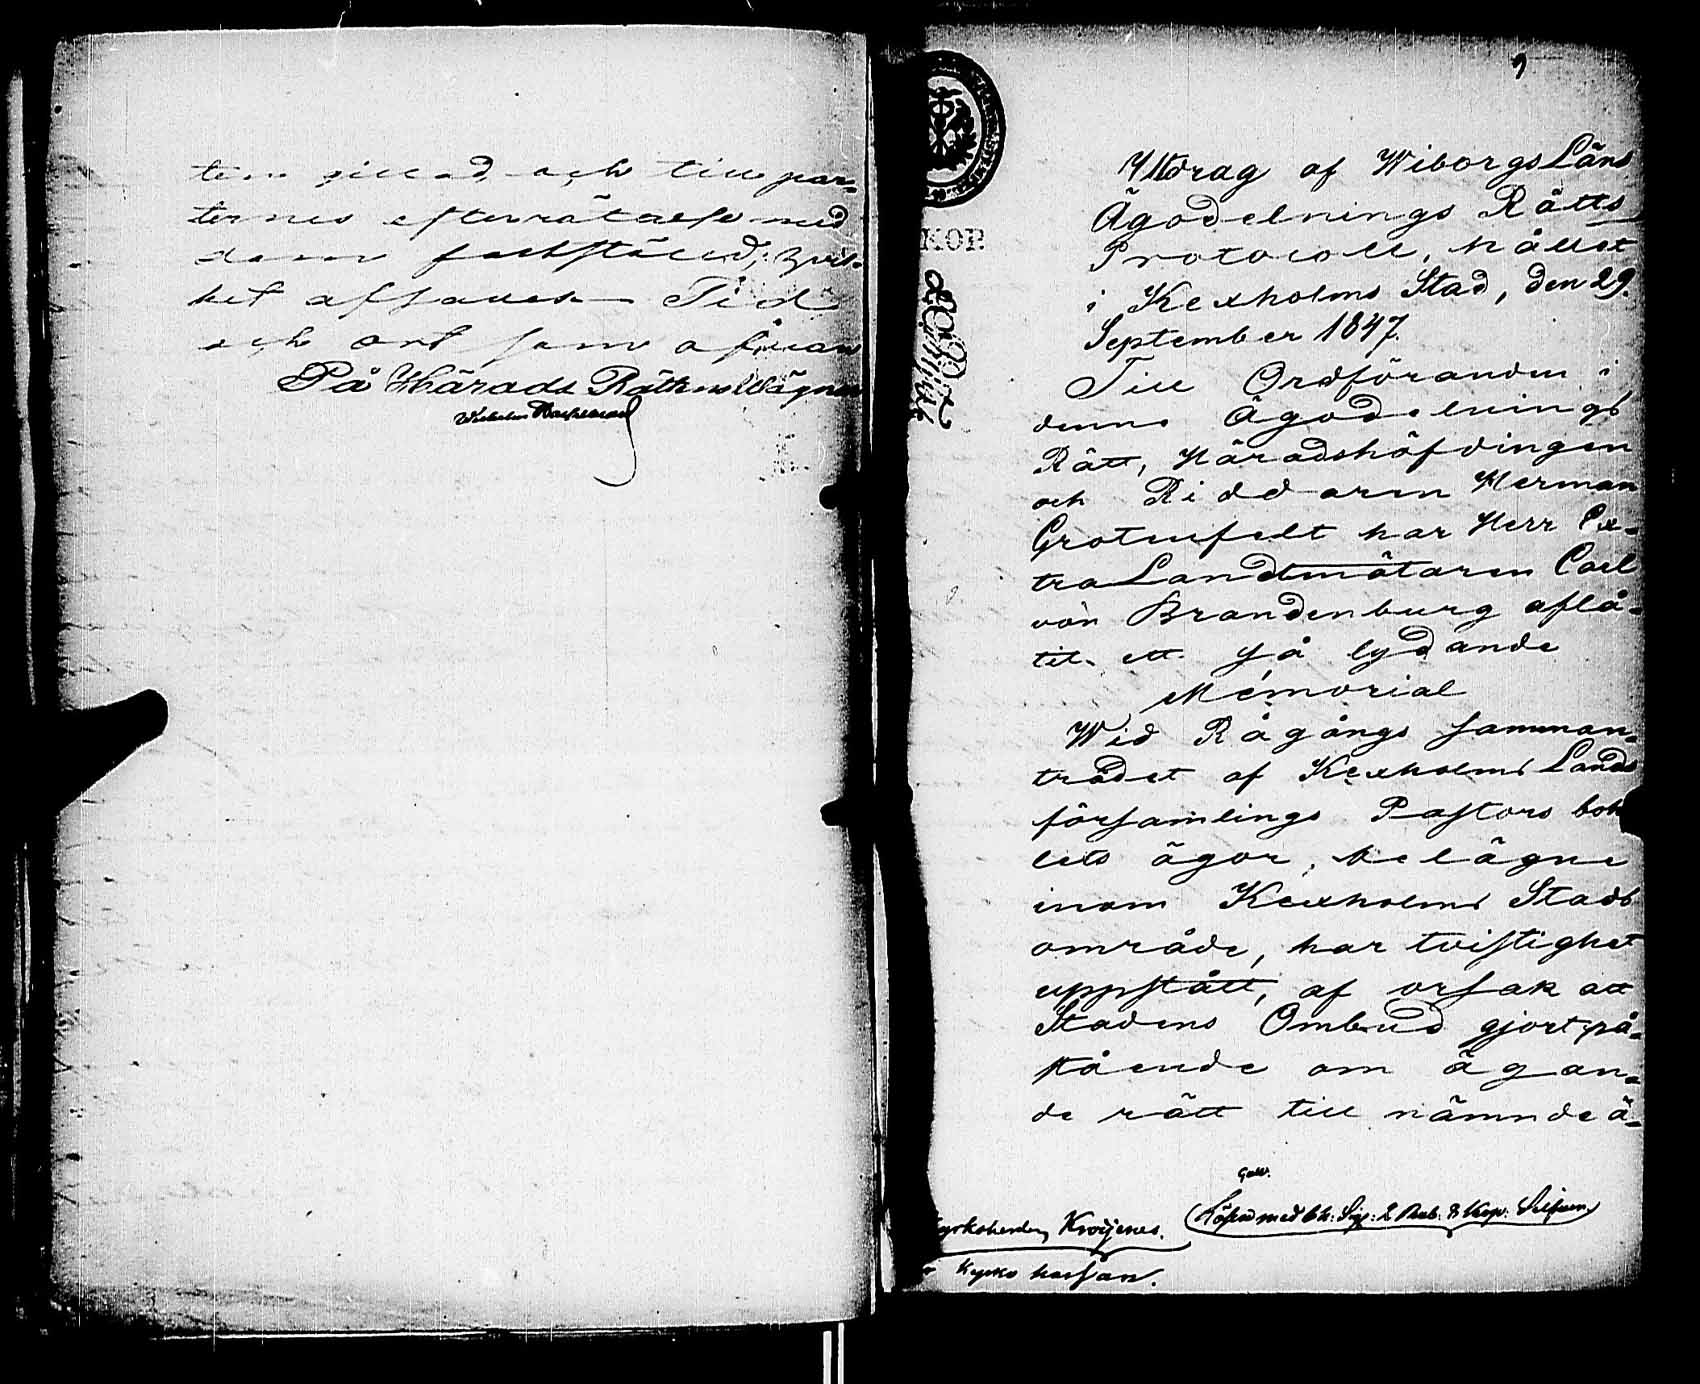 ten gillad och till par-
ternes efterrättelse med
dem fastställd; hvil-
ket afsades Tid
och ort som ofvan
På Härads Rättens Wägnar
Utdrag af Wiborgs Läns
Ägodelnings Rätts
Protocoll, hållet
i Kexholms Stad, den 29.
September 1847.
Till Ordföranden i
denne Ägodelnings
Rätt, Häradshöfdingen
och Riddaren Herman
Grotenfelt har Herr Ex-
tra Landtmätaren Carl
von Brandenburg aflå-
tit ett så lydande
Mémorial
Wid Rågångs samman-
trädet af Kexholms Lands
församlings Pastors bohl
lets ägor, belägne
inom Kexholms Stads
område, har tvistighet
uppstått, af orsak att
Stadens Ombud gjort på-
stående om ägan-
de rätt till nämnde ä-
KOP.
Kyrkoherden Krogerus.
Kyrko kassan.